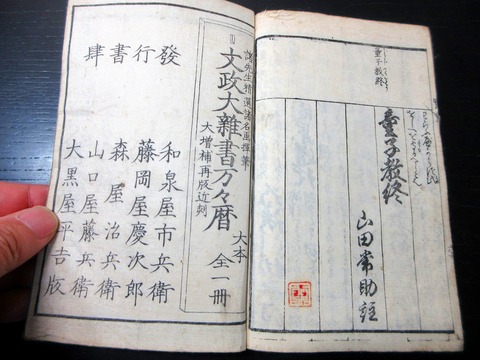 童子教終
童子教終
山田常助
諸先生精選諸名画揮筆
文政大雜書万々暦
大増補再版近刻
大本
全一冊
發行書肆
和泉屋市兵衛
藤岡屋慶次郎
森屋治兵衛
山口屋藤兵衛
大黒屋平吉版